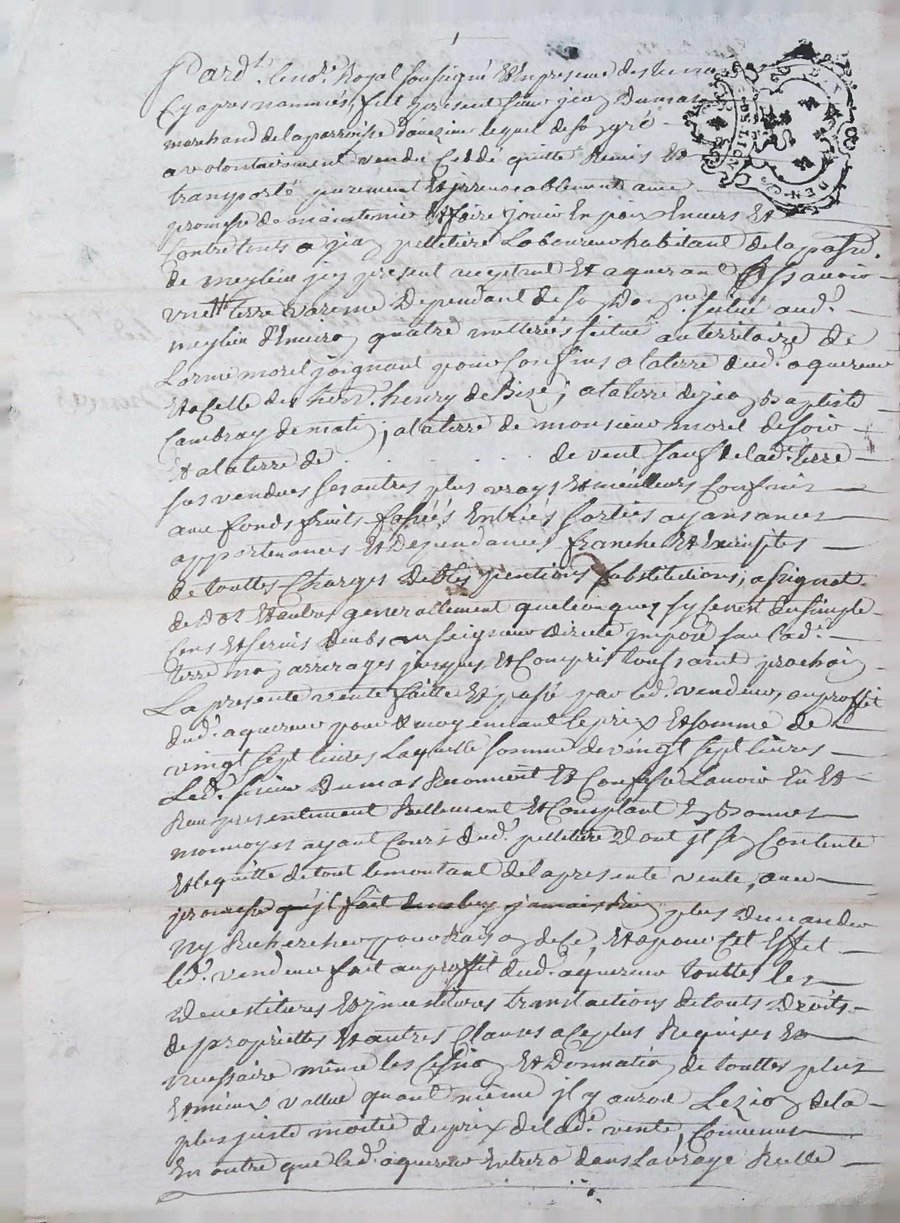 Pardt. le not. Royal soussigné et en presence des temo
cy apres nommés, fut present sieur jean dumas
marchand de la parroisse d'auezieu lequel de son gré
a volontairement vendu cedé quitté Remis et
transporté purement et irreuocablement auec
promesse de maintenir et faire jouir en paix Enuers et
Contre touts a jean pelletier Laboureur habitant de la parse.
de meylieu jcy present acceptant et aquerant Assauoir
vne terre varenne Dependant de son domne. située aud.
meylieu d'Enuiron quatre metterées située au territoire de
Lorme morel joignant pour Confins a la terre dud. aquereur
Et a Celle de sieur henry de Bizé; a la terre de jean Baptiste
Cambray de matin; a la terre de monsieur morel de soir
Et a la terre de . . . . . . de vent sauf de lad. terre
sus vendue ses autres plus vrays et meilleurs Confins
auec fonds fruits fossés Entrées sorties aysances
appartenances Et Dependances franche Et Exempte
de touttes Charges debtes pentions substitutions, assignat
de dot Et autres generallement quelconques sy ce n'est du simple
Cens et seruis deub au seigneur directe imposé sur lad.
terre non arrerages jusques et Compris toussaint prochain
La presente vente faitte Et passé par led. vendeur au proffit
dud. aquereur pour et moyennant le prix Et somme de
vingt sept liures Laquelle somme de vingt sept liures
Led. sieur Dumas Reconnoit Et Confesse L'auoir Eü Et
Reçu presentement Reellement Et Comptant En bonnes
monnoyes ayant Cours dud. pelletier Dont jl s'en Contente
Et le quitte de tout le montant de la presente vente, auec
promesse qu'jl fait de ne luy jamais Rien plus demander
Ny Rechercher pour Raison de Ce, Et pour Cet Effet
led. vendeur fait au proffit dud. aquereur touttes les
Deuestitures Et jnuestitures translactions de touts Droits
de proprietes Et autres Clauses a ce plus Requises Et
necessaire même les Cession Et Donnation de touttes plus
Et mieux vallue quand même jl y auroit Lezion de la
plus juste moitié du prix de lad. vente, Conuenus
En outre que led. aquereur Entrera dans La vraye Reelle